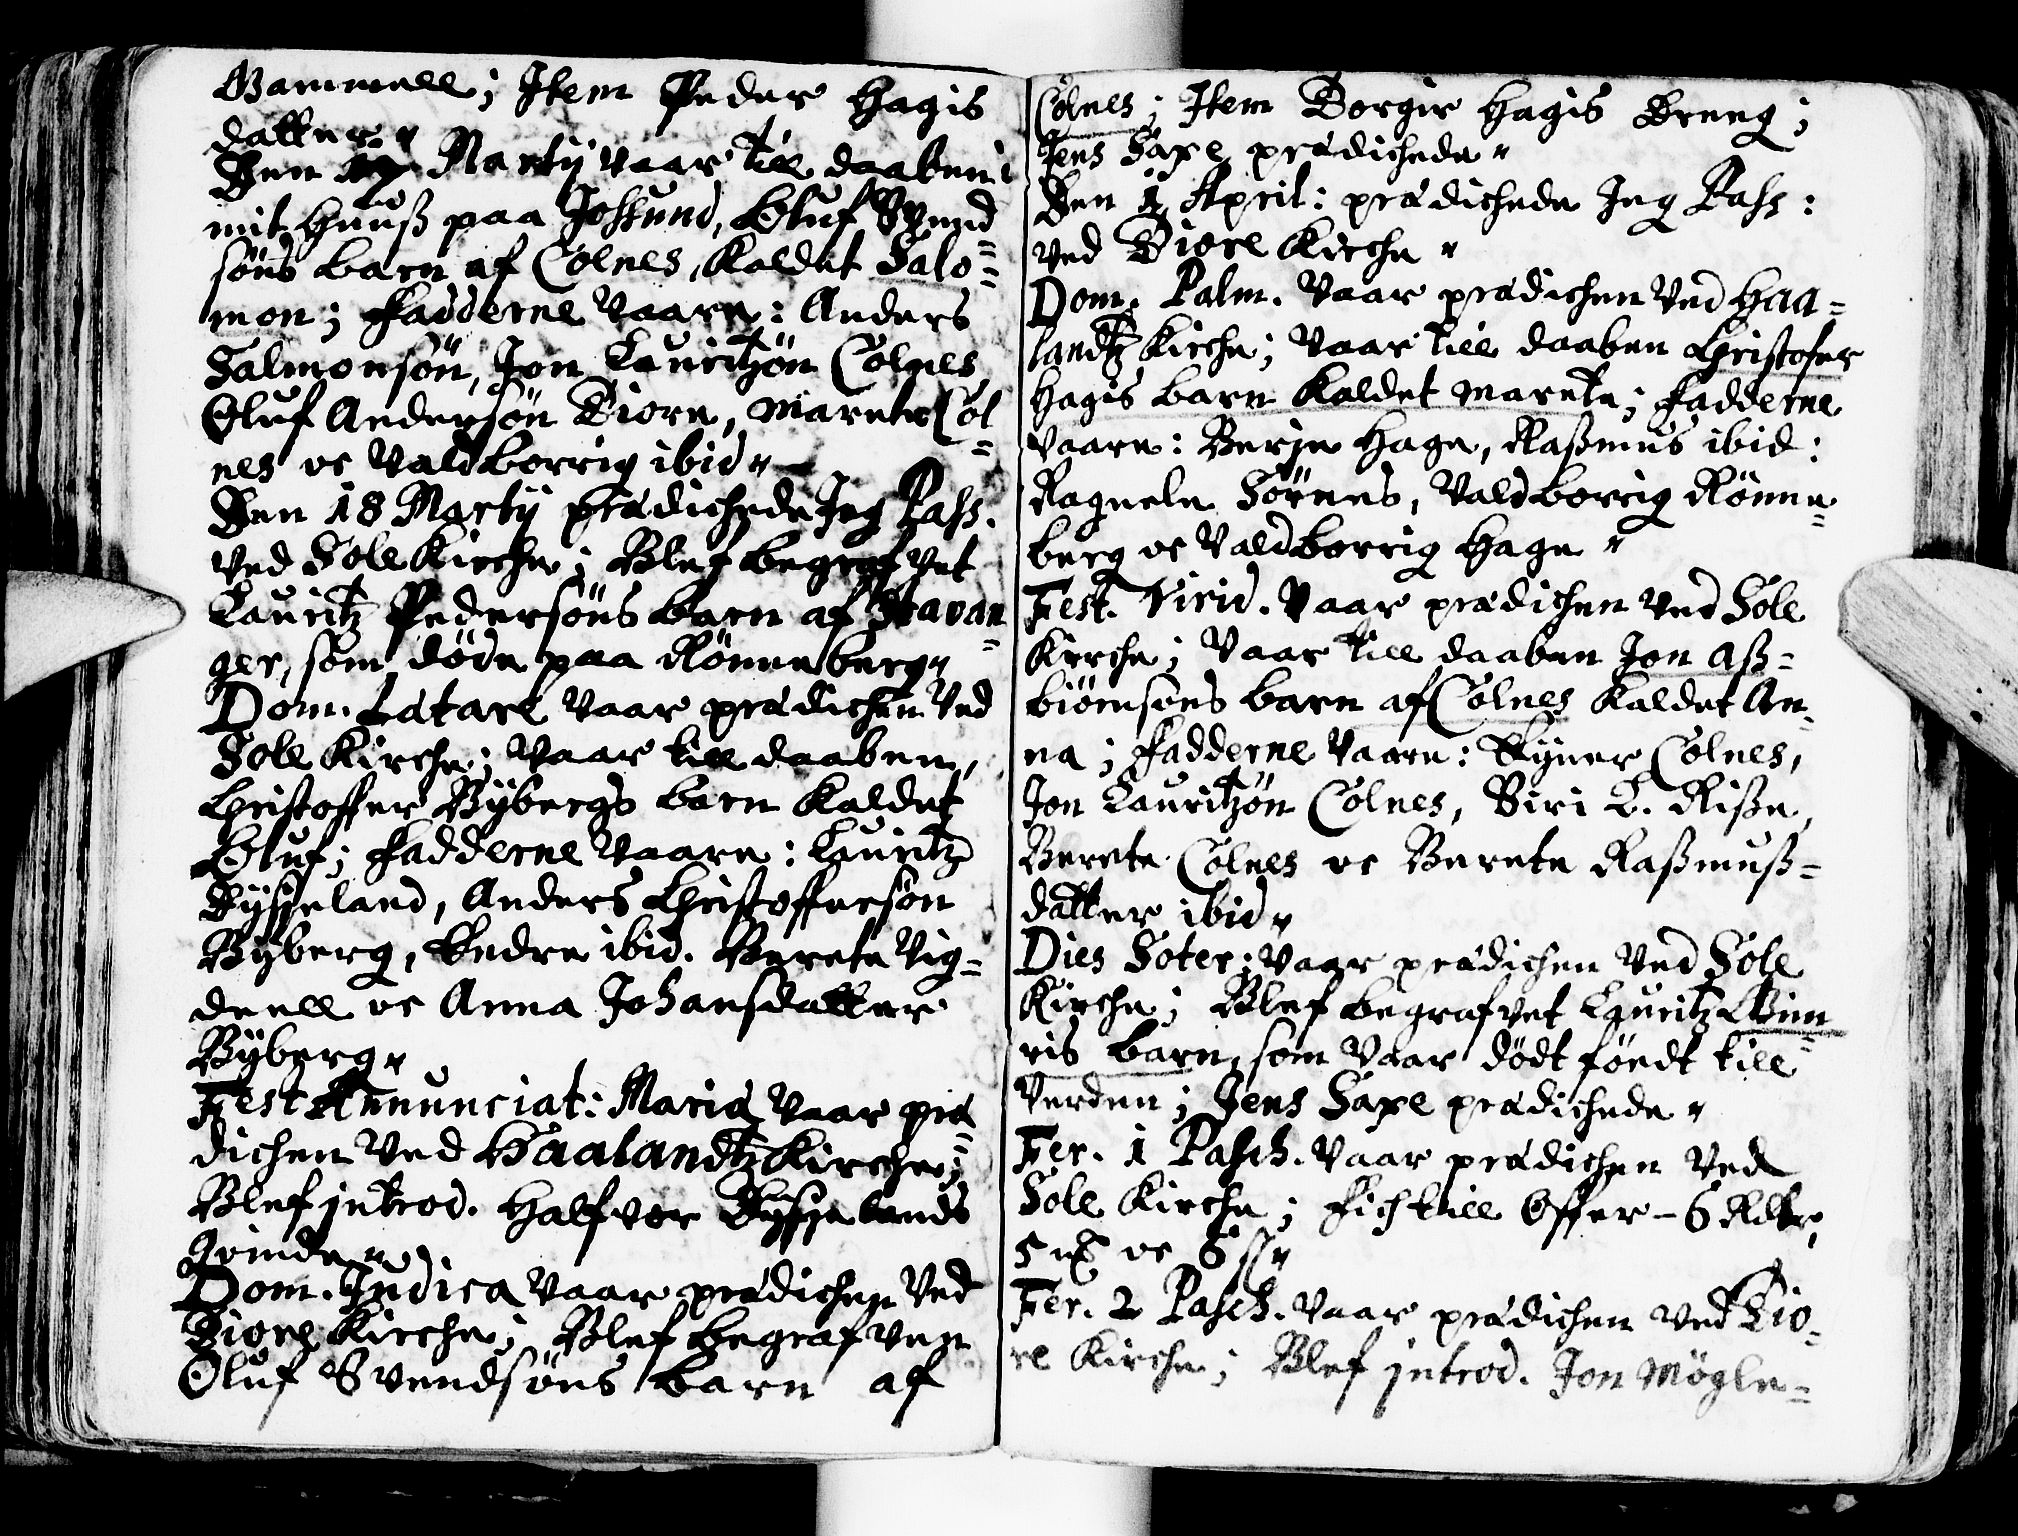 Gammell; Item Peder Hagis
datter"
Den Martij vaar till daaben i
mit huuß paa Jossund, Oluf Svend=
søns barn af Colnes, kaldet Salo=
mon; Fadderne vaare: Anders
Salmonsøn, Jon Lauritzøn Colnes
Oluf Andersøn Tiore, Marete Col=
nes oc Valdborrig ibid"
Den 18 Martij prædichede Jeg Pass.
ved Sole Kirche; Blef begrafvet
Lauritz Pedersøns barn af Stavan=
ger, som døde paa Rønneberg"
Dom. Lætare vaar prædichen ved
Sole Kirche; vaar till daaben,
Christoffer Bybergs barn kaldet
Oluf; Fadderne vaare: Lauritz
Rysseland, Anders Christoffersøn
Byberg, Endre ibid. Berete Vig=
deell oc Anna Johansdatter
Byberg"
Fest Annunciat: Mariæ vaar præ=
dichen ved Haalandtz Kirche;
Blef introd. Halfvor Rysselands
Qvinde"
Dom. Judica vaar prædichen ved
Tiore Kirche; Blef begrafven
Oluf Svendsøns barn af
Colnes; Item Borgir Hagis dreng;
Jens Saxe prædichede"
Den 1 April: prædichede Jeg Pass:
ved Tiore Kirche"
Dom. Palm. vaar prædichen ved Haa=
landtz Kirche; vaar till daaben Christofer
Hagis barn kaldet Marete; Fadderne
vaare: Berje Hage, Raßmus ibid:
Ragnele Sørnes, Valdborrig Rønne=
berg oc Valdborrig Hage"
Fest. Virid. vaar prædichen ved Sole
Kirche; vaar till daaben Jon Aß=
biørnsøns barn af Colnes kaldet An=
na; Fadderne vaare: Ejner Colnes,
Jon Lauritzøn Colnes, Siri L. Riße,
Berete Colnes oc Berete Raßmuß=
datter ibid"
Dies Soter: vaar prædichen ved Sole
Kirche; Blef begrafvet Lauritz
barn, som vaar dødt føedt till
Verden; Jens Saxe prædichede"
Fer. 1 Pasch. vaar prædichen ved
Sole Kirche; Fich till Offer - 6 Rdlr,
5 oc 6 ss"
Fer. 2 Pasch. vaar prædichen ved Tio=
re Kirche; Blef introd. Jon Møgle=